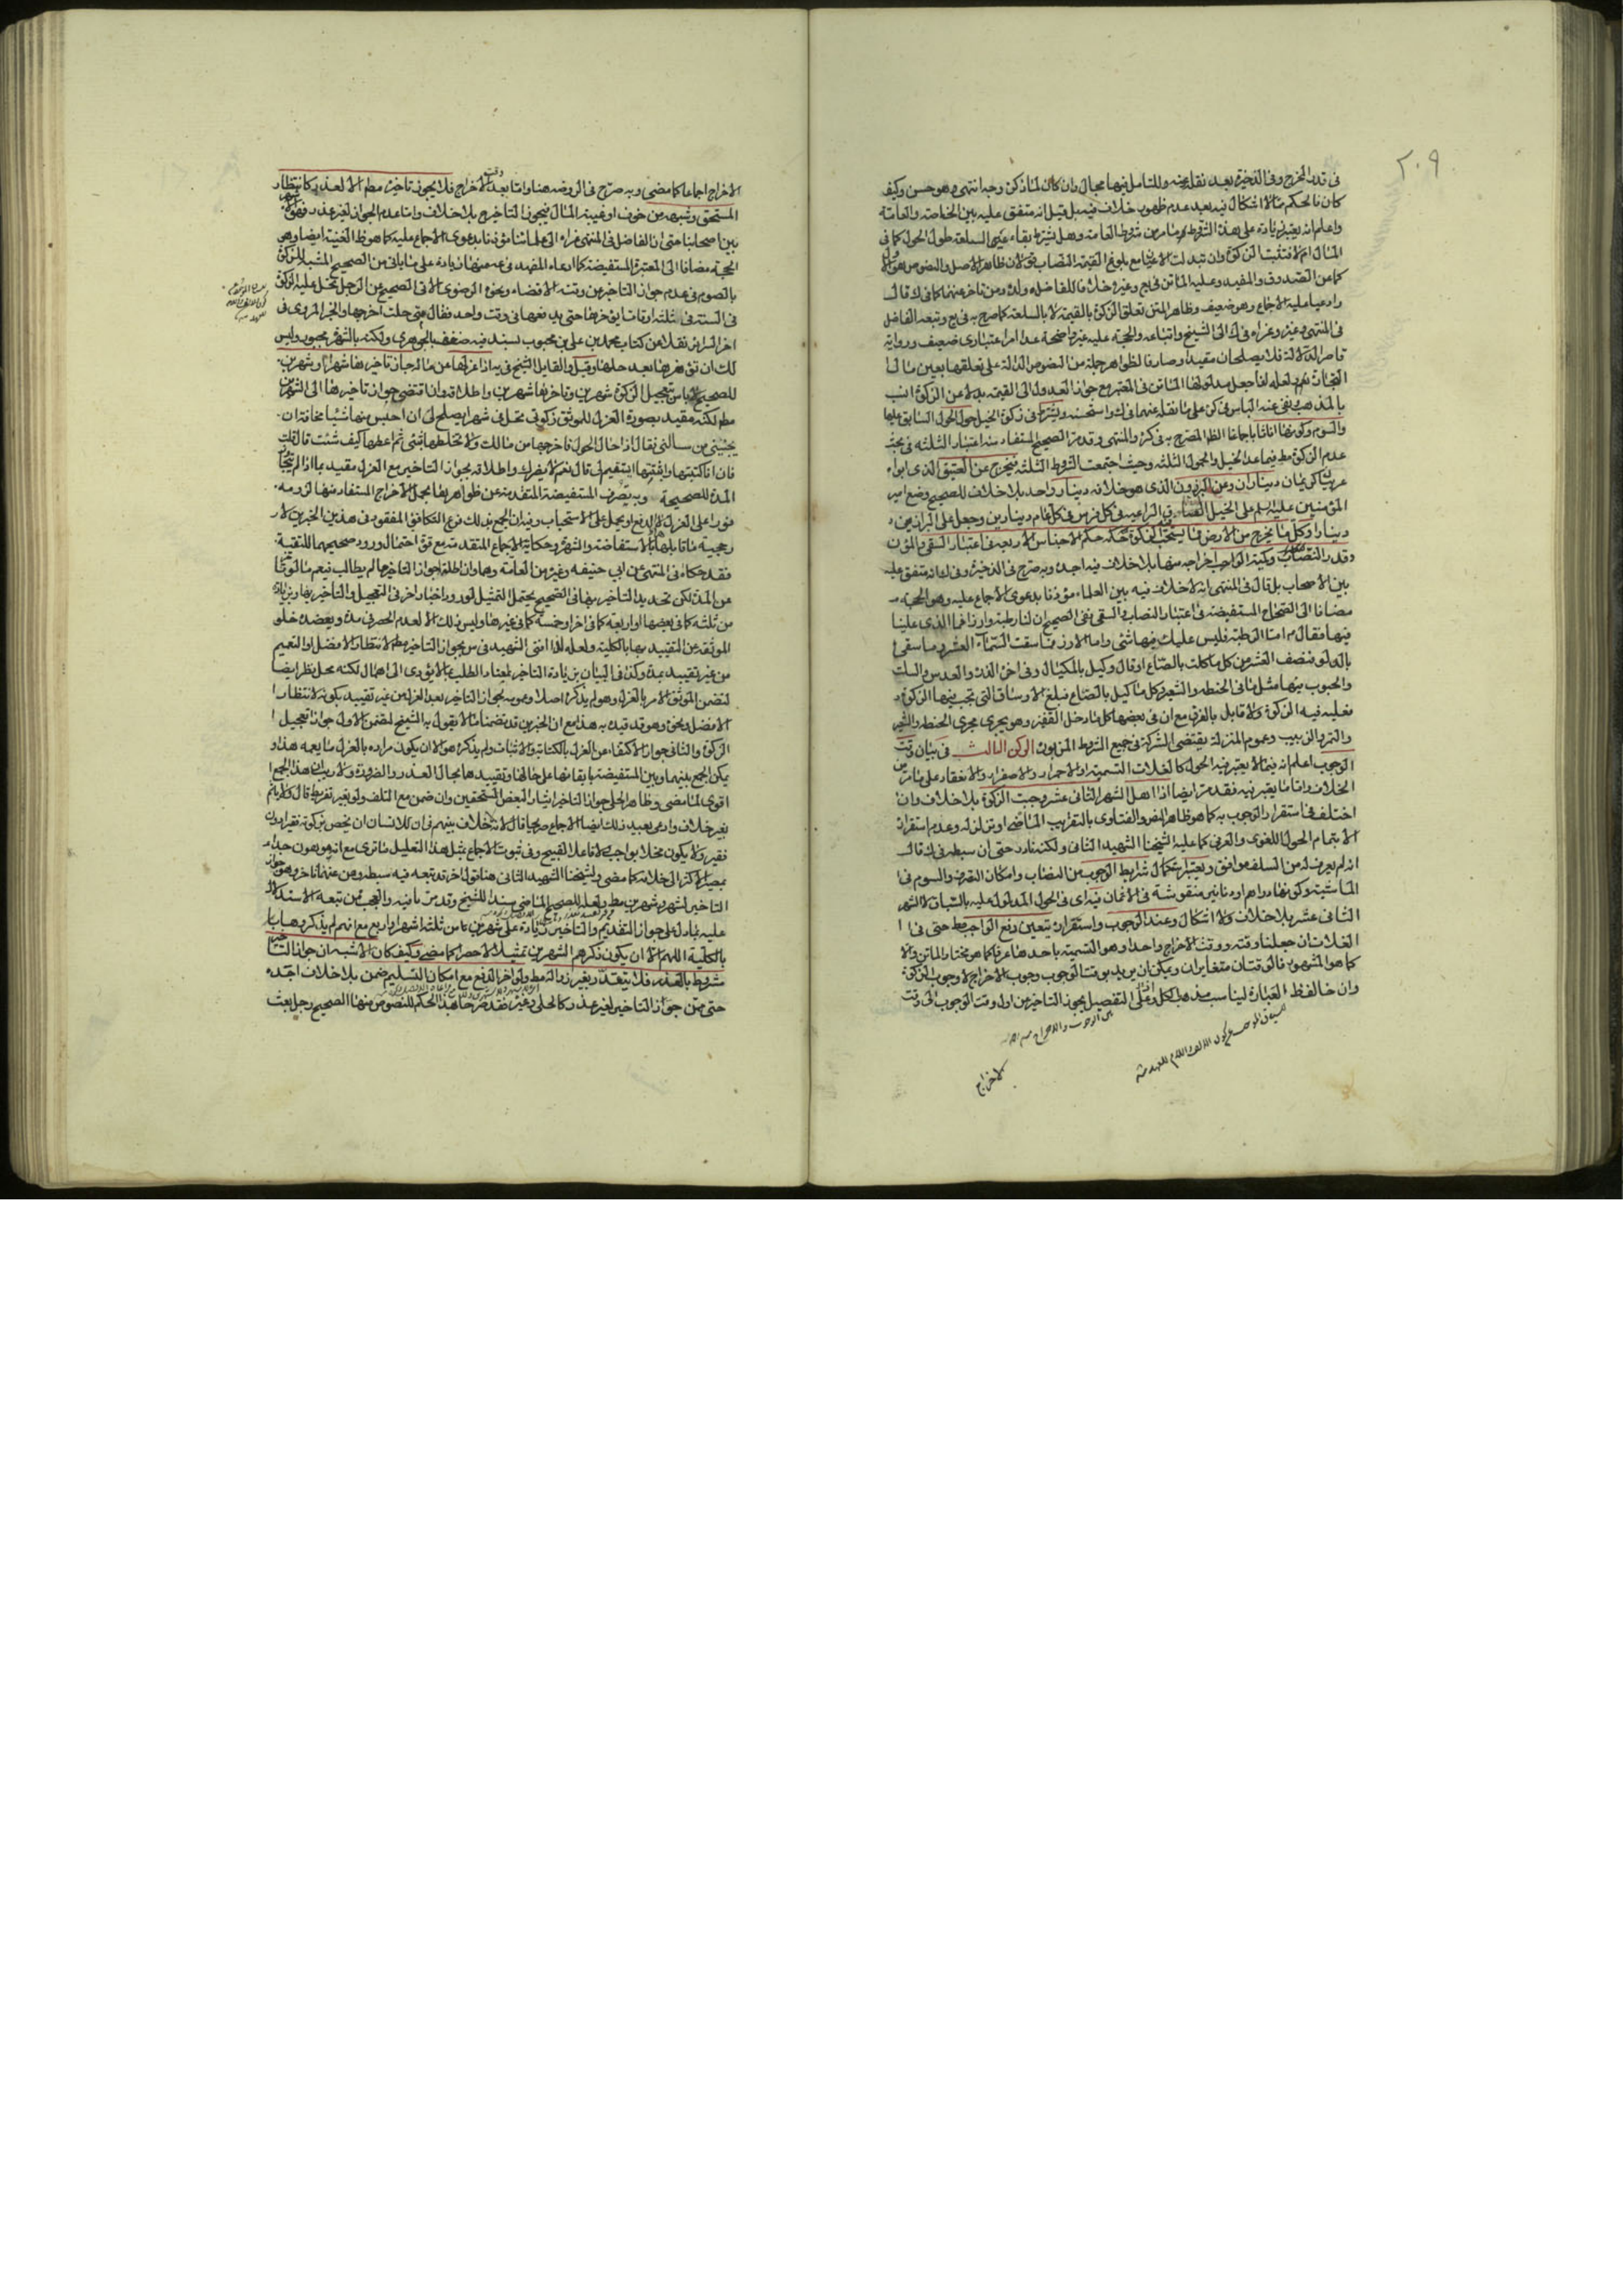 ٢٠٩
في قدر المخرج وفي الذخيرة بعد نقله عنه وللتامل فيها مجال وان كان لما ذكره وجه انتهى وهو حسن وكيف
كان فالحكم مما لا اشكال فيه بعد عدم ظهور خلاف فيه بل قيل انه متفق عليه بين الخاصة والعامة
واعلم انه يعتبر زيادة على هذه الشروط ما مر من شروط العامة وهل يشترط بقاء عين السلعة طول الحول كما في
المال ام لا فتثبت الزكوة وان تبدلت الاعيان مع بلوغ القيمة النصاب قولان ظاهر الاصل والنصوص هو الاول
كما عن الصدوق والمفيد وعليه الماتن في وغيره خلافا للفاضل وولده ومن تاخر عنهما كما في ك قالـ
وادعيا عليه الاجماع وهو ضعيف وظاهر المتن تعلق الزكوة بالقيمة لا بالسلعة كما صرح به في وتبعه الفاضل
في المنتهى وغيره وعزاه في ك الى الشيخ واتباعه والحجة عليه غير واضحة عدا امر اعتباري ضعيف ورواية
قاصر الدلالة فلا يصلحان مقيدا وصارفا لظواهر جملة من النصوص الدالة على تعلقها بعين مال
التجارة نعم لعله لذا جعل مدلولها الماتن في المعتبر مع جواز العدول الى القيمة بدلا عن الزكوة انسب
بالمذهب ونفى عنه الباس في كره على ما نقله عنهما في ك واستحسنه ويشترط في زكوة الخيل حول الحول السايق عليها
والسوم وكونها اناثا باجماعنا الظ المصرح به في كره والمنتهى وقد مر الصحيح المستفاد منه اعتبار الثلثة في بحث
عدم الزكوة مط فيما عدا الخيل والحمول الثلثة وحيث اجتمعت الشروط الثلثة فيخرج عن العتيق الذي ابواه
عربيان كريمان ديناران وعن البرذون الذي هو خلافه دينار واحد بلا خلاف للصحيح وضع امير
المؤمنين عليه السلم على الخيل العتاق الراعية في كل فرس في كل عام دينارين وجعل على البراذين
دينارا وكل ما يخرج من الارض مما يستحب فيه الزكوة حكمه حكم الاجناس الاربعة في اعتبار السقي والمؤن
وقدر النصاب وكمية الواجب اخراجه منها بلا خلاف فيه اجده وبه صرح في الذخيرة وفي انه متفق عليه
بين الاصحاب بل قال في المنتهى انه لا خلاف فيه بين العلماء مؤذنا بدعوى الاجماع عليه وهو الحجة
مضافا الى الصحاح المستفيضة في اعتبار النصاب والسقي ففي الصحيح ان لنا رطبة وارزا فما الذي علينا
فيها فقال اما الرطبة فليس عليك فيها شئ واما الارز فما سقت السماء العشر وما سقي
بالدلو فنصف العشر من كل ما كلت بالصاع او قال وكيل بالمكيال وفي اخر الذرة والعدس والسلت
والحبوب فيها مثل ما في الحنطة والشعير وكل ما كيل بالصاع فبلغ الاوساق التي تجب فيها الزكوة
فعليه فيه الزكوة ولا قايل بالفرق مع ان في بعضها كل ما دخل القفيز وهو يجري مجرى الحنطة والشعير
والتمر والزبيب وعموم المنزلة يقتضي الشركة في جميع الشروط المزبورة الركن الثالث في بيان وقت
الوجوب اعلم انه فيما لا يعتبر فيه الحول كالغلات التسمية او الاحمرار والاصفرار والانعقاد على ما مر من
الخلاف واما ما يعتبر فيه فقد مر ايضا اذا اهل الشهر الثاني عشر وجبت الزكوة بلا خلاف وان
اختلف في استقرار الوجوب به كما هو ظاهر النص والفتاوى بالتقريب الماضي او تزلزله وعدم استقراره
الا بتمام الحول اللغوي والعرفي كما عليه شيخنا الشهيد الثاني ولكنه نادر حتى ان سبطه في ك قال
انه لم يعرف له من السلف موافق ويعتبر استكمال شرايط الوجوب من النصاب وامكان التصرف والسوم في
الماشية وكونها دراهم او دنانير منقوشة في الاثمان فيه اي في الحول المدلول عليه بالسياق لا الشهر
الثاني عشر بلا خلاف ولا اشكال وعند الوجوب واستقراره يتعين دفع الواجب مط حتى في
الغلات ان جعلنا وقته ووقت الاخراج واحدا وهو التسمية باحدها عرفا كما هو مختار الماتن والا
كما هو المشهور فالوقتان متغايران ويمكن ان يريد بوقت الوجوب وجوب الاخراج لا وجوب الزكوة
وان خالف ظ العبارة ليناسب مذهب الكل وعلى التفصيل يجوز التاخير من اول وقت الوجوب الى وقت
الاخراج
الاخراج اجماعا كما مضى وبه صرح في الروضه هنا واما بعد وقت الاخراج فلا يجوز تاخيره مطم الا لعذر كانتظار
المستحق وشبهه من خوف او غيبة المال فيجوز التاخير ح بلا خلاف واما عدم الجواز لغير عذر فهو الاشهر
بين اصحابنا حتى ان الفاضل في المنتهى عزاه الى علمائنا مؤذنا بدعوى الاجماع عليه كما هو ظ الغنية ايضا وهي
الحجة مضافا الى المعتبرة المستفيضة كما ادعاه المفيد في عه منها زيادة على ما ياتي من الصحيح المشبه للزكوة
بالصوم في عدم جواز التاخير من وقته الاقضاء ونحوه الرضوي الاتي الصحيح عن الرجل تحل عليه الزكوة
في السنة في ثلثه اوقات ايؤخرها حتى يدفعها في وقت واحد فقال متى حلت اخرجها والخبر المروي في
اخر السرائر نقلا من كتاب محمد بن علي بن محبوب بسند فيه ضعف بالجوهري ولكنه بالشهرة مجبور وليس
لك ان تؤخرها بعد حلها وقيل والقايل الشيخ في يه اذا عزلها عن ماله جاز تاخيرها شهرا وشهرين
للصحيح لا باس بتعجيل الزكوة شهرين وتاخيرها شهرين واطلاقه وان اقتضى جواز تاخيرها الى الشهرين
مطم لكنه مقيد بصورة العزل للموثق زكوتي تحل في شهر ايصلح لي ان احبس منها شيئا مخافة ان
يجيئني من يسالني فقال اذا حال الحول فاخرجها من مالك ولا تخلطها بشئ ثم اعطها كيف شئت قال قلت
فان انا كتبتها واثبتها ايستقيم لي قال نعم لا يضرك واطلاقه بجواز التاخير مع العزل مقيد بما اذا لم يتجاوز
المدة للصحيحة وبه يصرف المستفيضة المتقدمة عن ظواهرها بحمل الاخراج المستفاد منها لزومه
فورا على العزل او الدفع او يحمل على الاستحباب وفيه ان الجمع بذلك فرع التكافؤ المفقود في هذين الخبرين لا
رجحية ما قابلهما بالاستفاضة والشهرة وحكاية الاجماع المتقدمة مع قوة احتمال ورود صحيحهما للتقية
فقد حكاه في المنتهى عن ابي حنيفه وغيره من العامة وهما وان اطلقا جواز التاخير ما لم يطالب فيعم ما فوق
عن المدة لكن تحديد التاخير بها في الصحيح يحتمل التمثيل لورود اخبار اخر في التعجيل والتاخير بها وبزيادة
من ثلثه كما في بعضها او اربعة كما في اخر او خمسة كما في غيرها وليس ذلك الا لعدم الحصر في مدة ويعضده خلو
الموثقة عن التقييد بها بالكلية ولعله لذا افتى الشهيد في س بجواز التاخير مطم لانتظار الافضل او التعميم
من غير تقييد بمدة وكذا في البيان بزيادة التاخير لمعتاد الطلب بما لا يؤدي الى اهمال لكنه محل نظر ايضا
لتضمن الموثق الامر بالعزل وهو لم يذكره اصلا وعمومه بجواز التاخير بعد العزل من غير تقييد بكونه لانتظار
الافضل ونحوه وهو قد قيد به هذا مع ان الخبرين قد تضمنا ما لا يقول به الشيخ لتضمن الاول جواز تعجيل
الزكوة والثاني جواز الاكتفاء عن العزل بالكتابة والاثبات ولم يذكره هو الا ان يكون مراده بالعزل ما يعمه هذا و
يمكن الجمع بينهما وبين المستفيضة بابقائها على حالها وتقييدهما بحال العذر والضرورة ولا ريب ان هذا الجمع
اقوى لما مضى وظاهر الحلي جواز التاخير ايثارا لبعض المستحقين وان ضمن مع التلف ولو بغير تفريط قال ولا ياثم
بغير خلاف وادعى بعيد ذلك ايضا الاجماع صريحا قال لانه لا خلاف بينهم في ان للانسان ان يخص بزكوته فقيرا دون
فقير ولا يكون مخلا بواجب ولا فاعلا لقبيح وفي ثبوت الاجماع بمثل هذا التعليل ما ترى مع انه موهون جدا
بمصير الاكثر الى خلافه كما مضى ولشيخنا الشهيد الثاني هنا قول اخر قد تبعه فيه سبطه ومن عنهما تاخر وهو جواز
التاخير لشهر وشهرين مط ولعله للصحيح الماضي سندا للشيخ وقد مر ما فيه والعجب ممن تبعه الاستدلال
عليه بما دل على جواز التقديم والتاخير زيادة على شهرين بما من ثلثه اشهر او اربع مع انهم لم يذكروها بابا
بالكلية اللهم الا ان يكون ذكرهم الشهرين تمثيلا لا حصرا كما مضى وكيف كان الاشبه ان جواز التاخير
مشروط بالعذر فلا يتقدر بغير زواله مط ولو اخر الدفع مع امكان التسليم ضمن بلا خلاف اجده
حتى ممن جوز التاخير لغير عذر كالحلي وغيره فقد صرحا بهذا الحكم للنصوص منها الصحيح رجل بعث